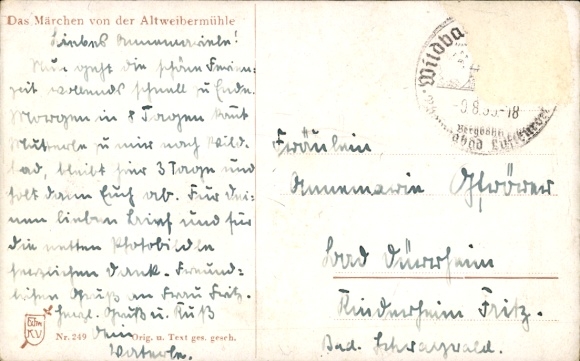 Das Märchen von der Altweibermühle
Liebes Annemariele!
Nun geht die schöne Ferien-
zeit vollends schnell z. Ende.
Morgen in 8 Tagen kommt
Mutterle zu mir nach Wild-
bad, bleibt hier 3 Tage und
holt dann Euch ab. Für Dei-
nen lieben Brief und für
die netten Photobildle
herzlichen Dank. Freund-
lichen Gruß an Frau Fritz.
Herzl. Gruß u. Kuß
Dein
Vaterle.
Nr. 249 Orig. u. Text ges. gesch.
Wildba
-9.8.35-18
Bergbahn
Luftkurort
Fräulein
Annemarie Gfrörer
Bad Dürrheim
Kinderheim Fritz.
Bad. Schwarzwald.